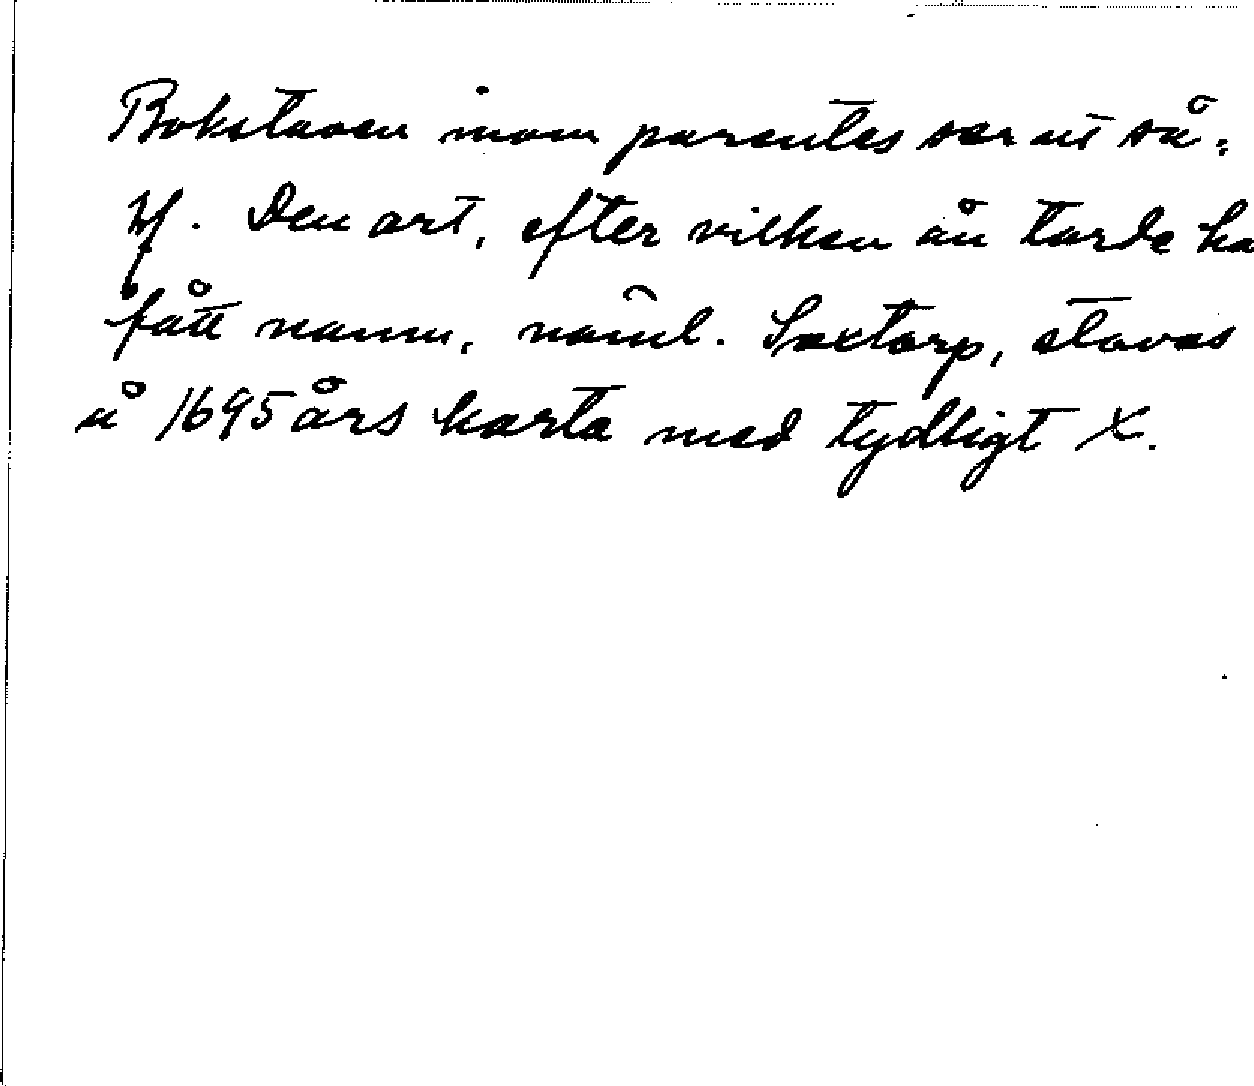 Bokstaven inom parentes ser ut så:
. Den ort, efter vilken ån torde ha
fått namn, näml. Saxtorp, stavas
å 1695 års karta med tydligt X.